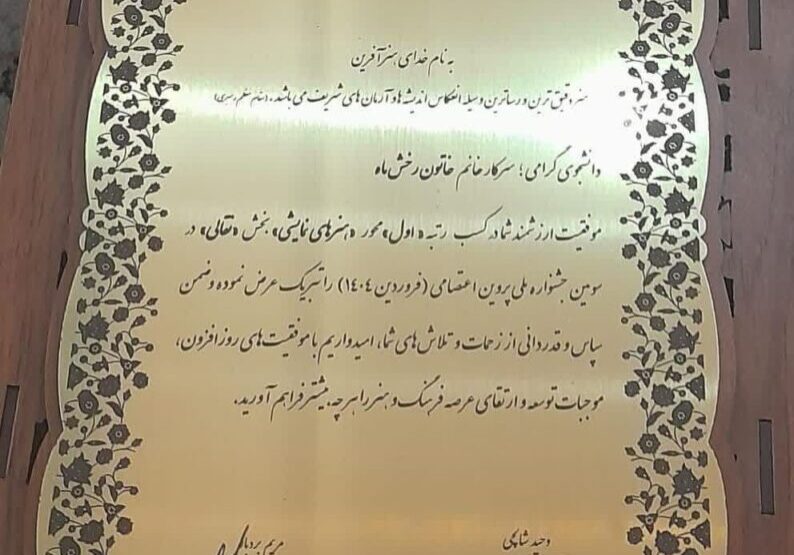 به نام خدای هنرآفرین
هنر دقیق ترین و رساترین وسیله انعکاس اندیشه ها و آرمان های شریف می باشد. (مقام معظم رهبری)
دانشجوی گرامی؛ سرکار خانم خاتون رخش ماه
موفقیت ارزشمند شما در کسب رتبه «اول» محور «هنرهای نمایشی» بخش «نقالی» در
سومین جشنواره ملی پروین اعتصامی (فروردین ۱۴۰۴) را تبریک عرض نموده و ضمن
سپاس و قدردانی از زحمات و تلاش های شما، امیدواریم با موفقیت های روزافزون،
موجبات توسعه و ارتقای عرصه فرهنگ و هنر را هر چه بیشتر فراهم آورید.
وحید
مریم